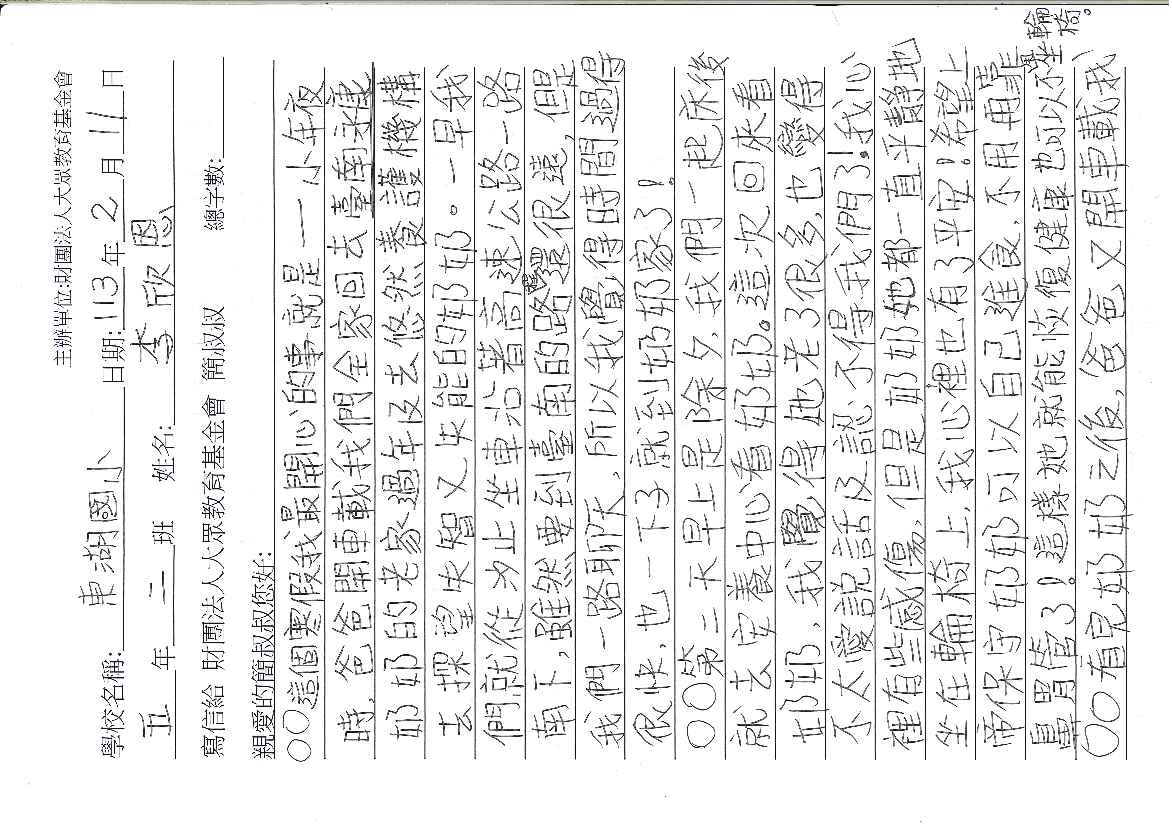 主辦單位:財團法人大眾教育基金會
學校名稱: 東湖國小 日期: 113 年 2 月 11 日
五 年 二 班 姓名: 李欣恩
寫信給 財團法人大眾教育基金會 簡叔叔 總字數:
親愛的簡叔叔您好:
○○這個寒假我最開心的事就是——小年夜
時,爸爸開車載我們全家回去臺南永康
奶奶的老家過年及去悠然養護機構
去探望失智又失能的奶奶。一早我
們就從汐止坐車沿著高速公路一路
南下,雖然要到臺南的路還很遠,但是
我們一路聊天,所以我覺得時間過得
很快,也一下子就到奶奶家了!
○○第二天早上是除夕,我們一起床後
就去安養中心看奶奶。這次回來看
奶奶,我覺得她老了很多,也變得
不太愛說話及認不得我們了!我心
裡有些感傷,但是奶奶她都一直平靜地
坐在輪椅上,我心裡也有了平安!希望上
帝保守奶奶可以自己進食,不用用靠
鼻胃管了!這樣她就能恢復健康也可以不坐輪椅。
○○看完奶奶之後,爸爸又開車載我